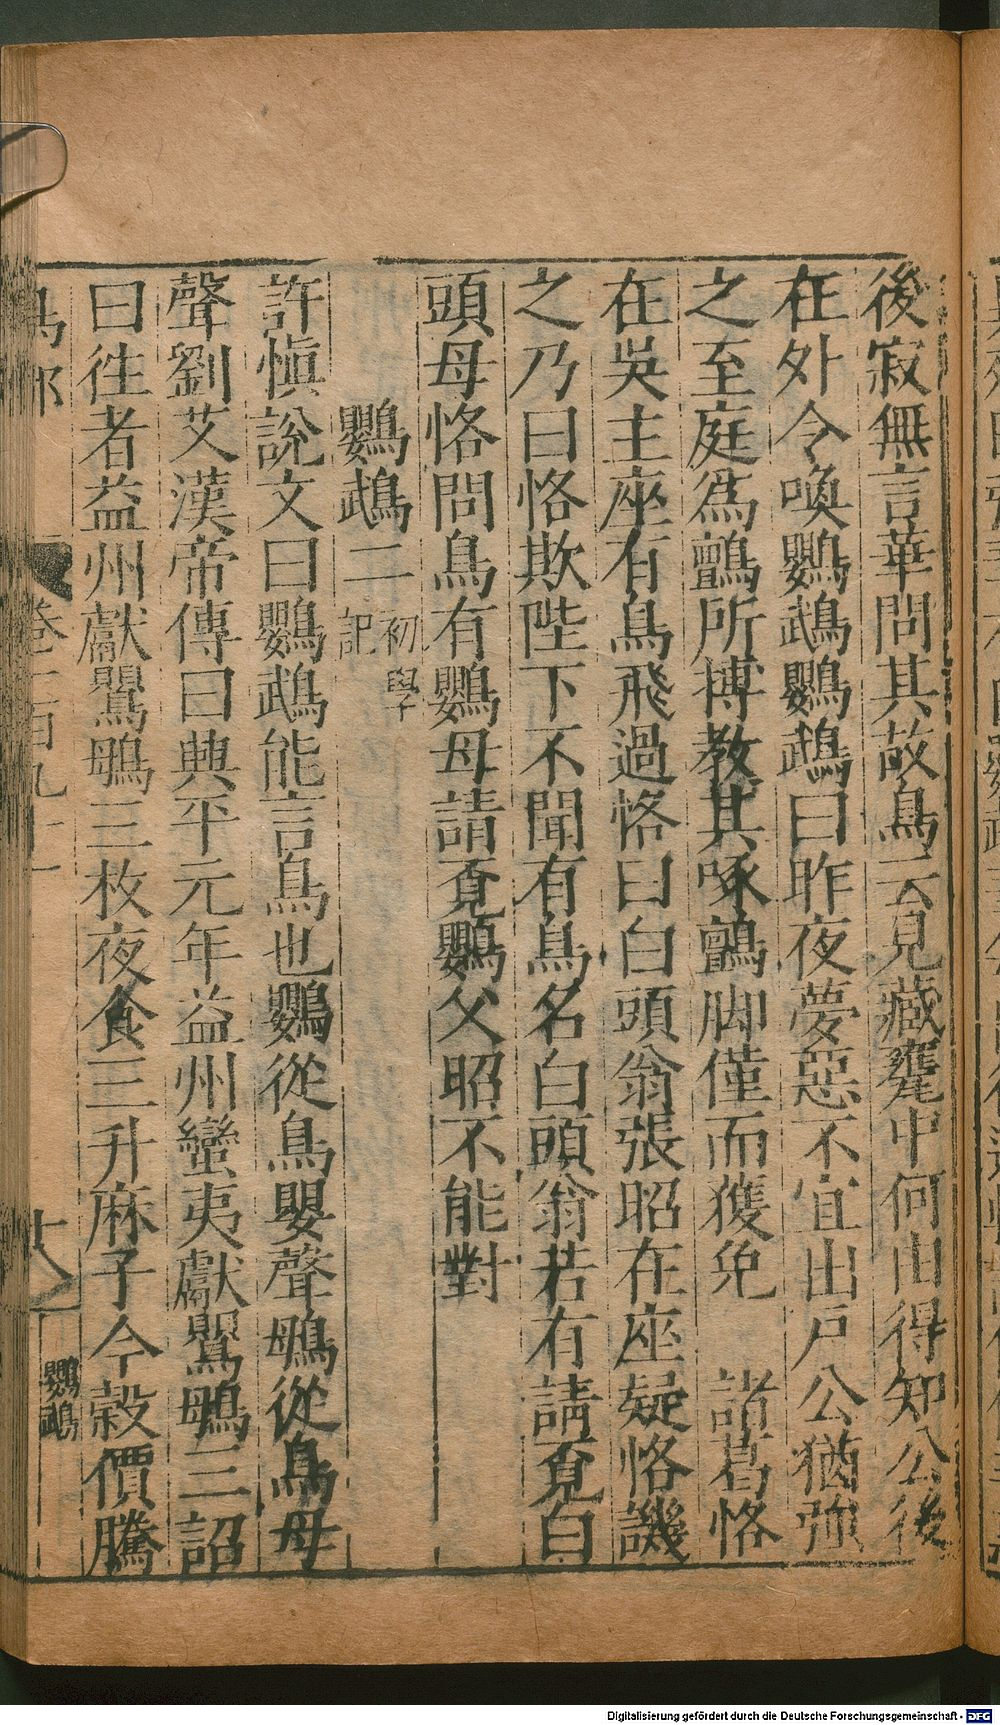 後寂無言華問其故鳥云見藏甕中何由得知公後
在外令喚鸚鵡鸚鵡曰昨夜夢惡不宜出戶公猶强
之至庭爲鸇所搏教其啄鸇脚僅而獲免　諸葛恪
在吳主座有鳥飛過恪曰白頭翁張昭在座疑恪譏
之乃曰恪欺陛下不聞有鳥名白頭翁若有請覔白
頭母恪問鳥有鸚母請覔鸚父昭不能對
鸚鵡二 初學記
許慎說文曰鸚鵡能言鳥也鸚從鳥嬰聲䳇從鳥母
聲劉艾漢帝傳曰興平元年益州蠻夷獻鸎䳇三詔
曰往者益州獻鸎䳇三枚夜食三升麻子今榖價騰
鳥部
卷三百九十一
十八
鸚鵡
Digitalisierung gefördert durch die Deutsche Forschungsgemeinschaft - DFG